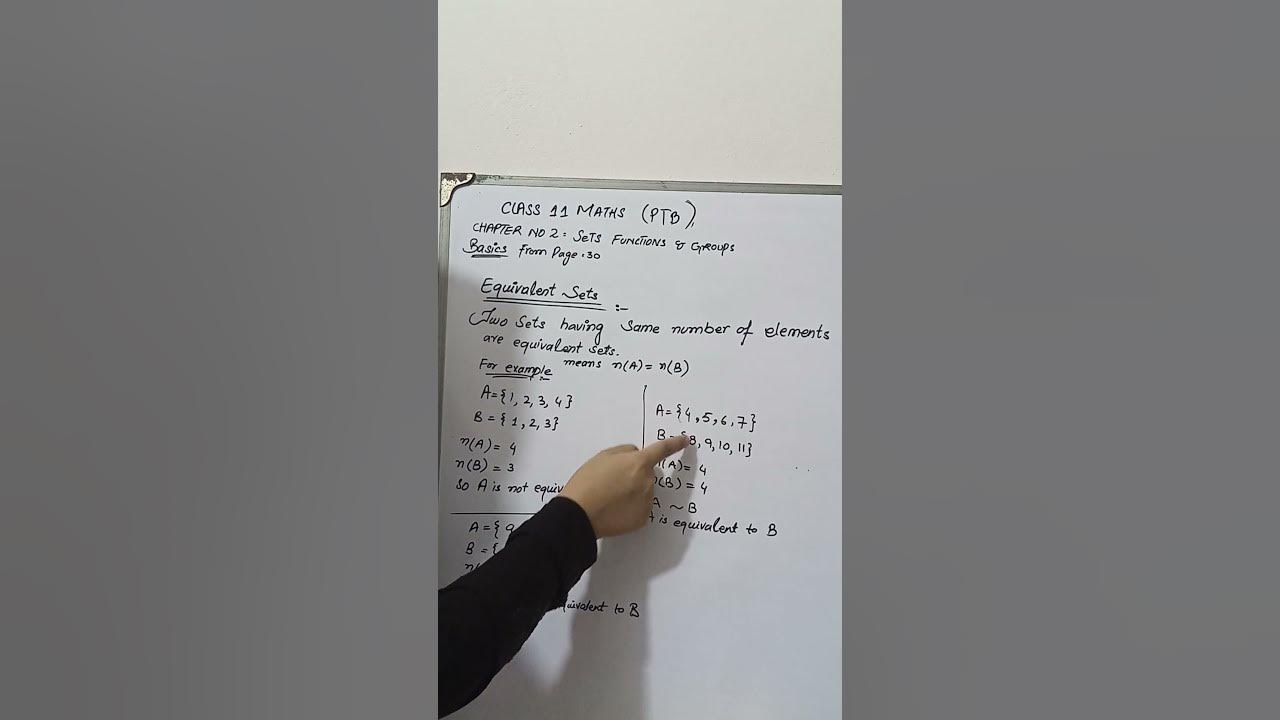 CLASS 11 MATHS (PTB),
CHAPTER NO 2: SETS FUNCTIONS & GROUPS
Basics From Page:30
Equivalent Sets :-
Two Sets having Same number of elements
are equivalent sets.
For example:- means n(A) = n(B)
A={1, 2, 3, 4}
B = { 1, 2, 3}
n(A) = 4
n(B) = 3
So A is not
A = {
B = {
to B
A={4, 5, 6, 7}
B = {8, 9, 10, 11}
n(A) = 4
n(B) = 4
A ~ B
A is equivalent to B